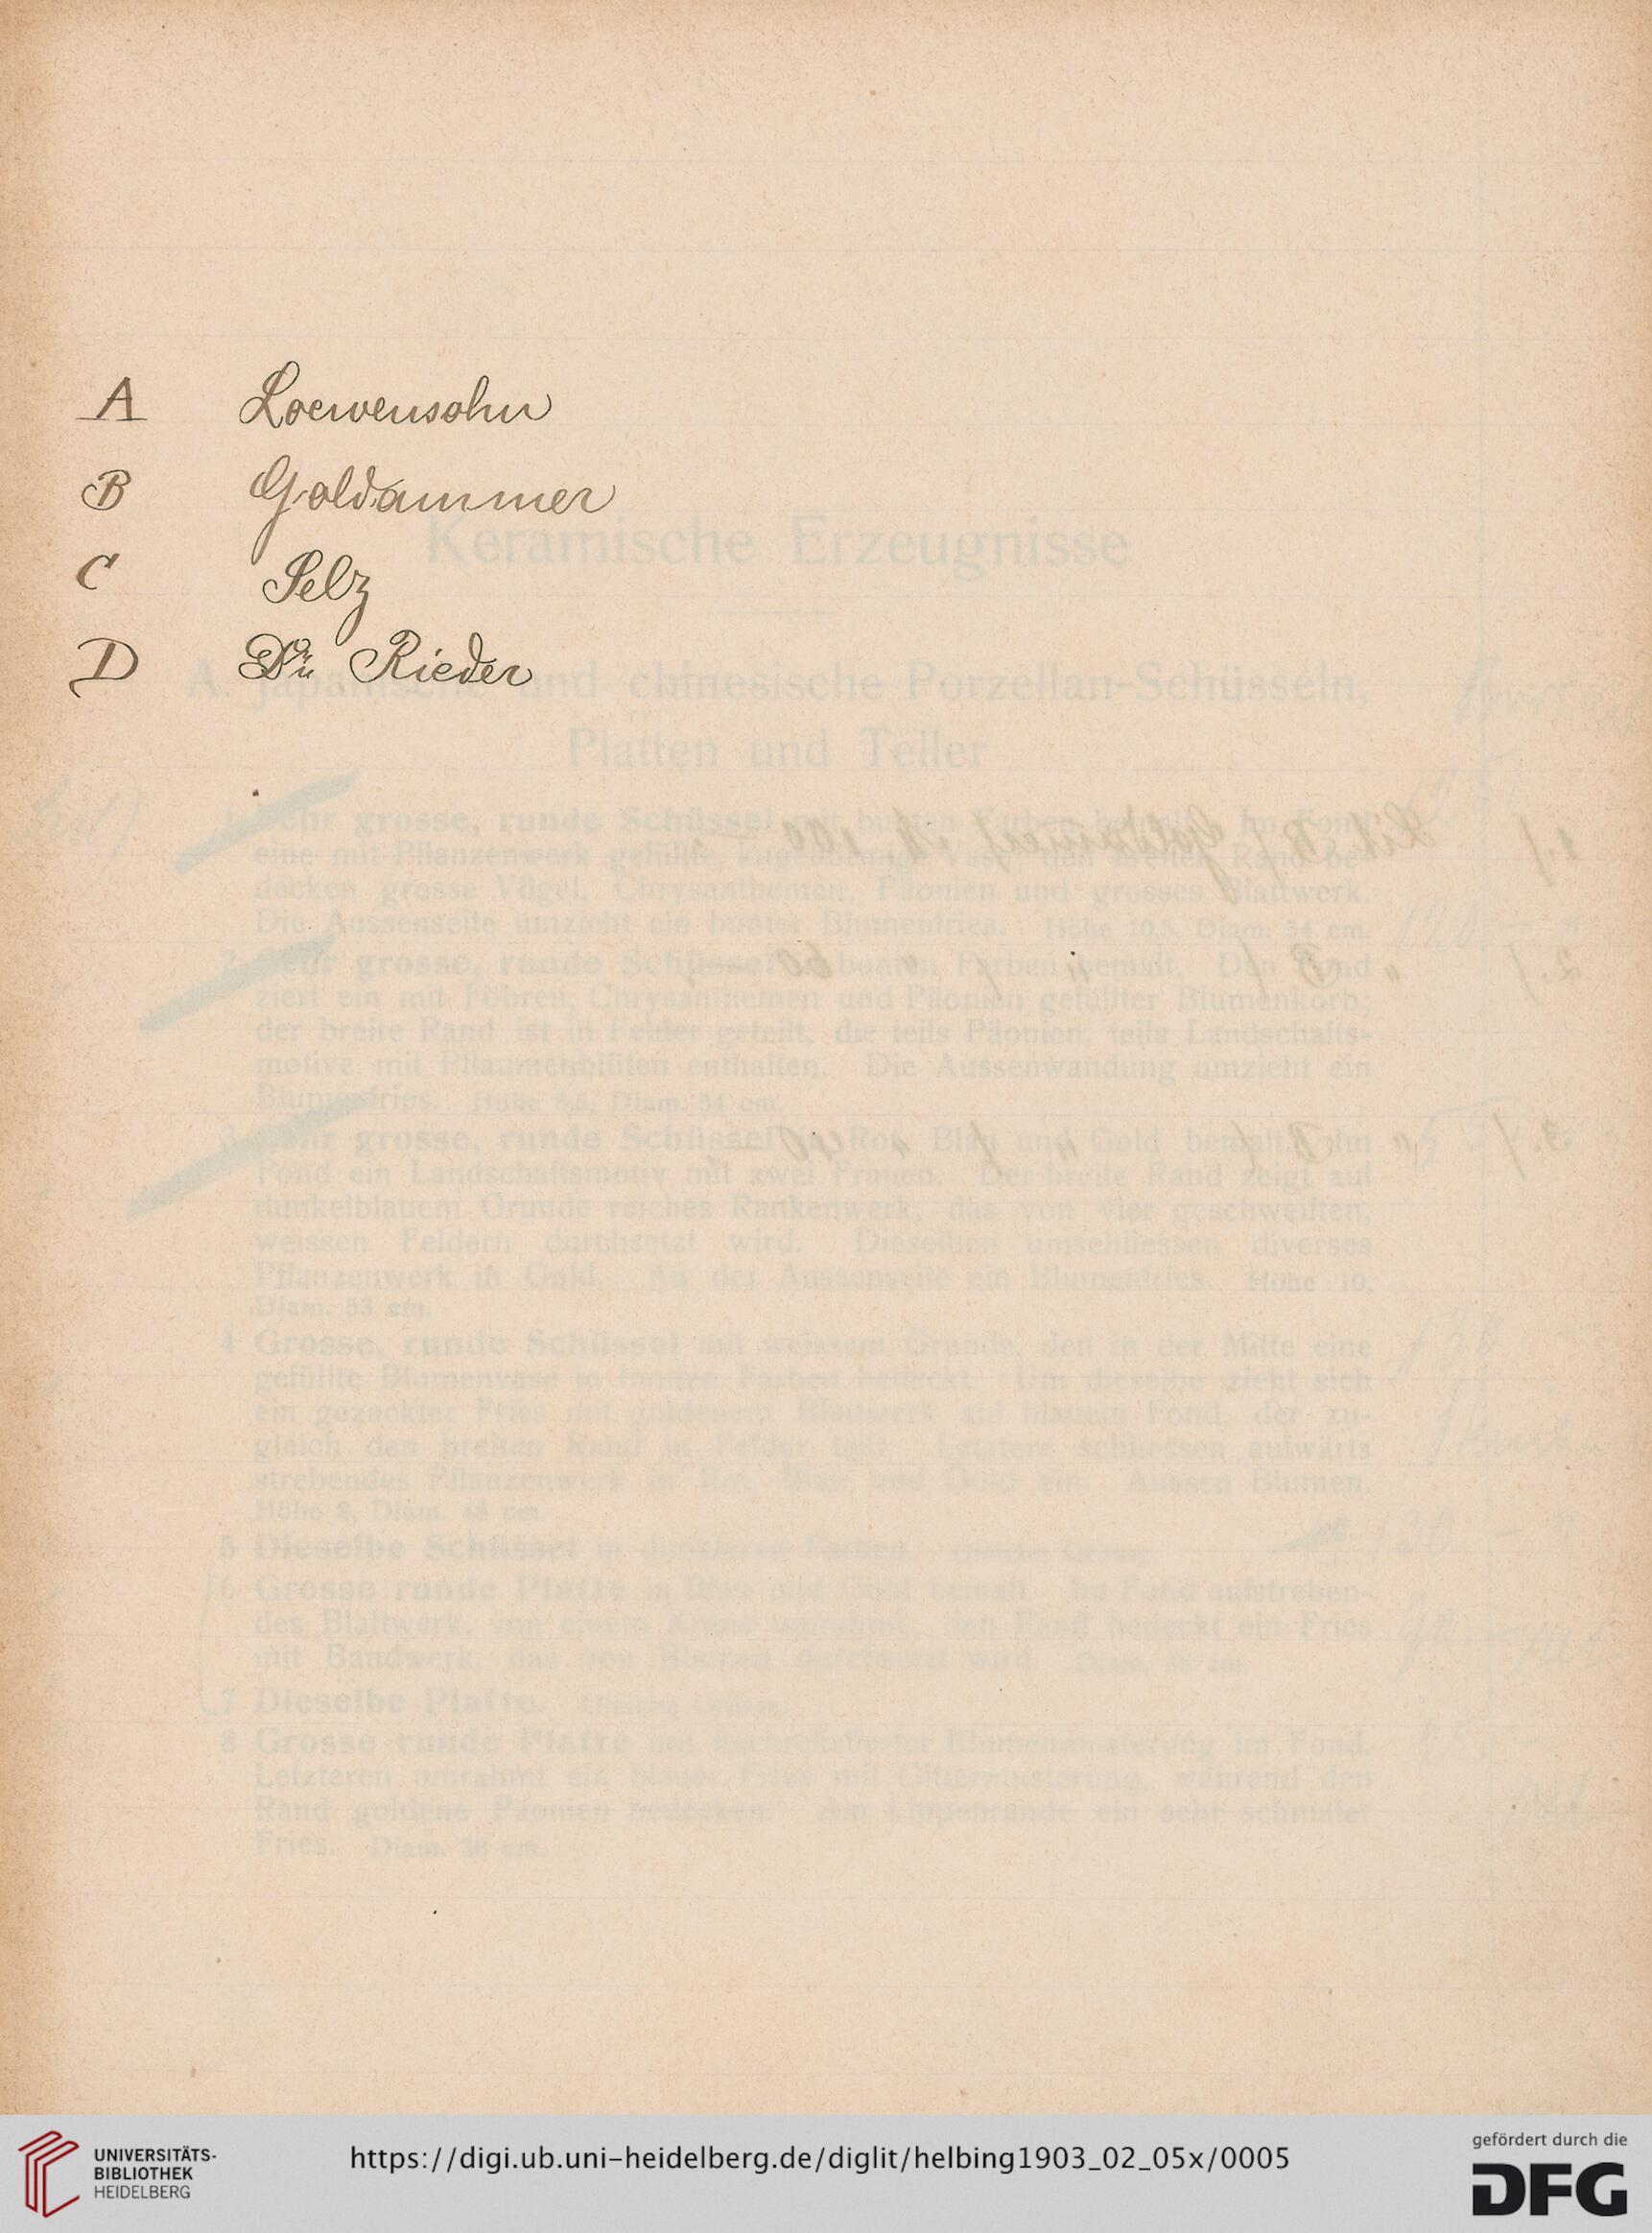 A Loewensohn
B Goldammer
C Pelz
D Dr. Rieder
Keramische Erzeugnisse
A. Japanische und chinesische Porzellan-Schüsseln,
Platten und Teller
1 Sehr grosse, runde Schüssel mit bunten Farben bemalt. Im Fond
eine mit Pflanzenwerk gefüllte, Vase; den breiten Rand be-
decken grosse Vögel, Chrysanthemen, Päonien und grosses Blattwerk.
Die Aussenseite umzieht ein bunter Blumenfries. Höhe 10,5, Diam. 54 cm.
2 Sehr grosse, runde Schüssel in bunten Farben bemalt. Den Fond
ziert ein mit Föhren, Chrysanthemen und Päonien gefüllter Blumenkorb;
der breite Rand ist in Felder geteilt, die teils Päonien, teils Landschafts-
motive mit Pflaumenblüten enthalten. Die Aussenwandung umzieht ein
Blumenfries. Höhe 8,5, Diam. 54 cm.
3 Sehr grosse, runde Schüssel in Rot, Blau und Gold bemalt. Im
Fond ein Landschaftsmotiv mit zwei Frauen. Der breite Rand zeigt auf
dunkelblauem Grunde reiches Rankenwerk, das von vier geschweiften,
weissen Feldern durchsetzt wird. Dieselben umschliessen diverses
Pflanzenwerk in Gold. An der Aussenseite ein Blumenfries. Höhe 10,
Diam. 53 cm.
4 Grosse, runde Schüssel mit weissem Grunde, den in der Mitte eine
gefüllte Blumenvase in bunten Farben bedeckt. Um dieselbe zieht sich
ein gezackter Fries mit goldenem Blattwerk auf blauem Fond, der zu-
gleich den breiten Rand in Felder teilt. Letztere schliessen aufwärts
strebendes Pflanzenwerk in Rot, Blau und Gold ein. Aussen Blumen.
Höhe 8, Diam. 48 cm.
5 Dieselbe Schüssel in dunkleren Farben. Gleiche Grösse.
6 Grosse runde Platte in Blau und Gold bemalt. Im Fond aufstreben-
des Blattwerk, von einem Kranz umrahmt; den Rand bedeckt ein Fries
mit Bandwerk, das von Blumen durchsetzt wird.
7 Dieselbe Platte. Gleiche Grösse.
8 Grosse runde Platte mit Blumenmusterung im Fond.
Letzteren umrahmt ein blauer Fries mit Gittermusterung, während den
Rand goldene Päonien bedecken. Am Lippenrande ein sehr schmaler
Fries. Diam. 36 cm.
UNIVERSITÄTS-
BIBLIOTHEK
HEIDELBERG
https://digi.ub.uni-heidelberg.de/diglit/helbing1903_02_05x/0005
gefördert durch die
DFG